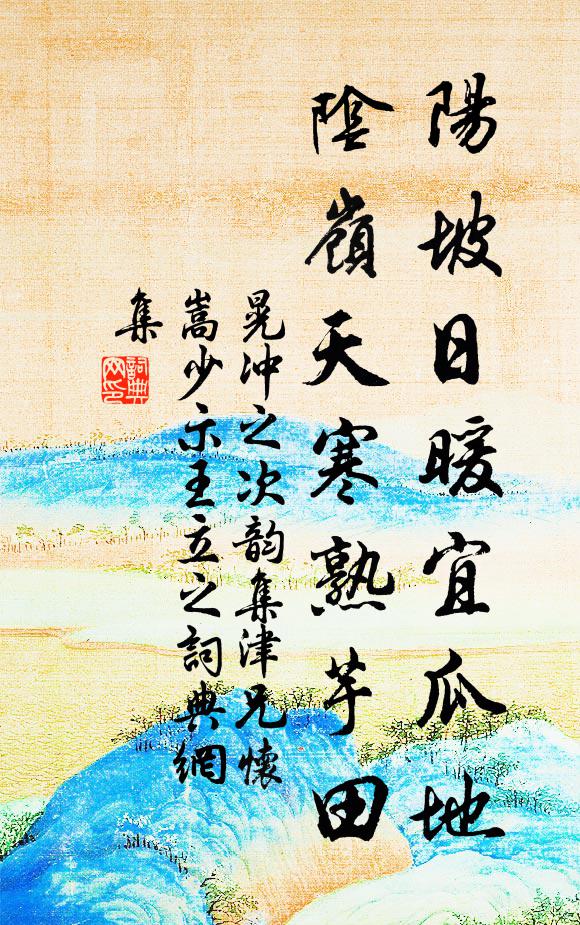 陽坡日暖宜瓜地
陰嶺天寒熟芋田
晁沖之次韵集津兄懷
嵩少示王立之詞典網
集
詞典
网印